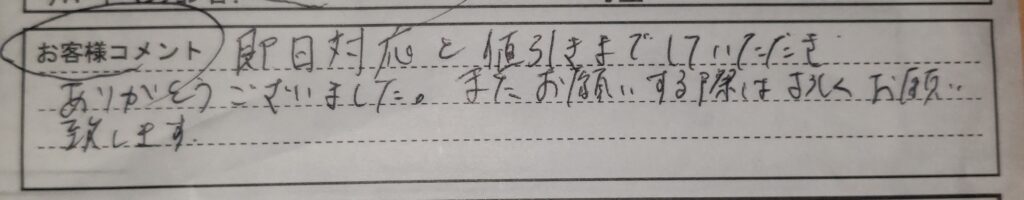 お客様コメント 即日対応と値引きまでしていただき
ありがとうございました。またお願いする際はよろしくお願い
致します